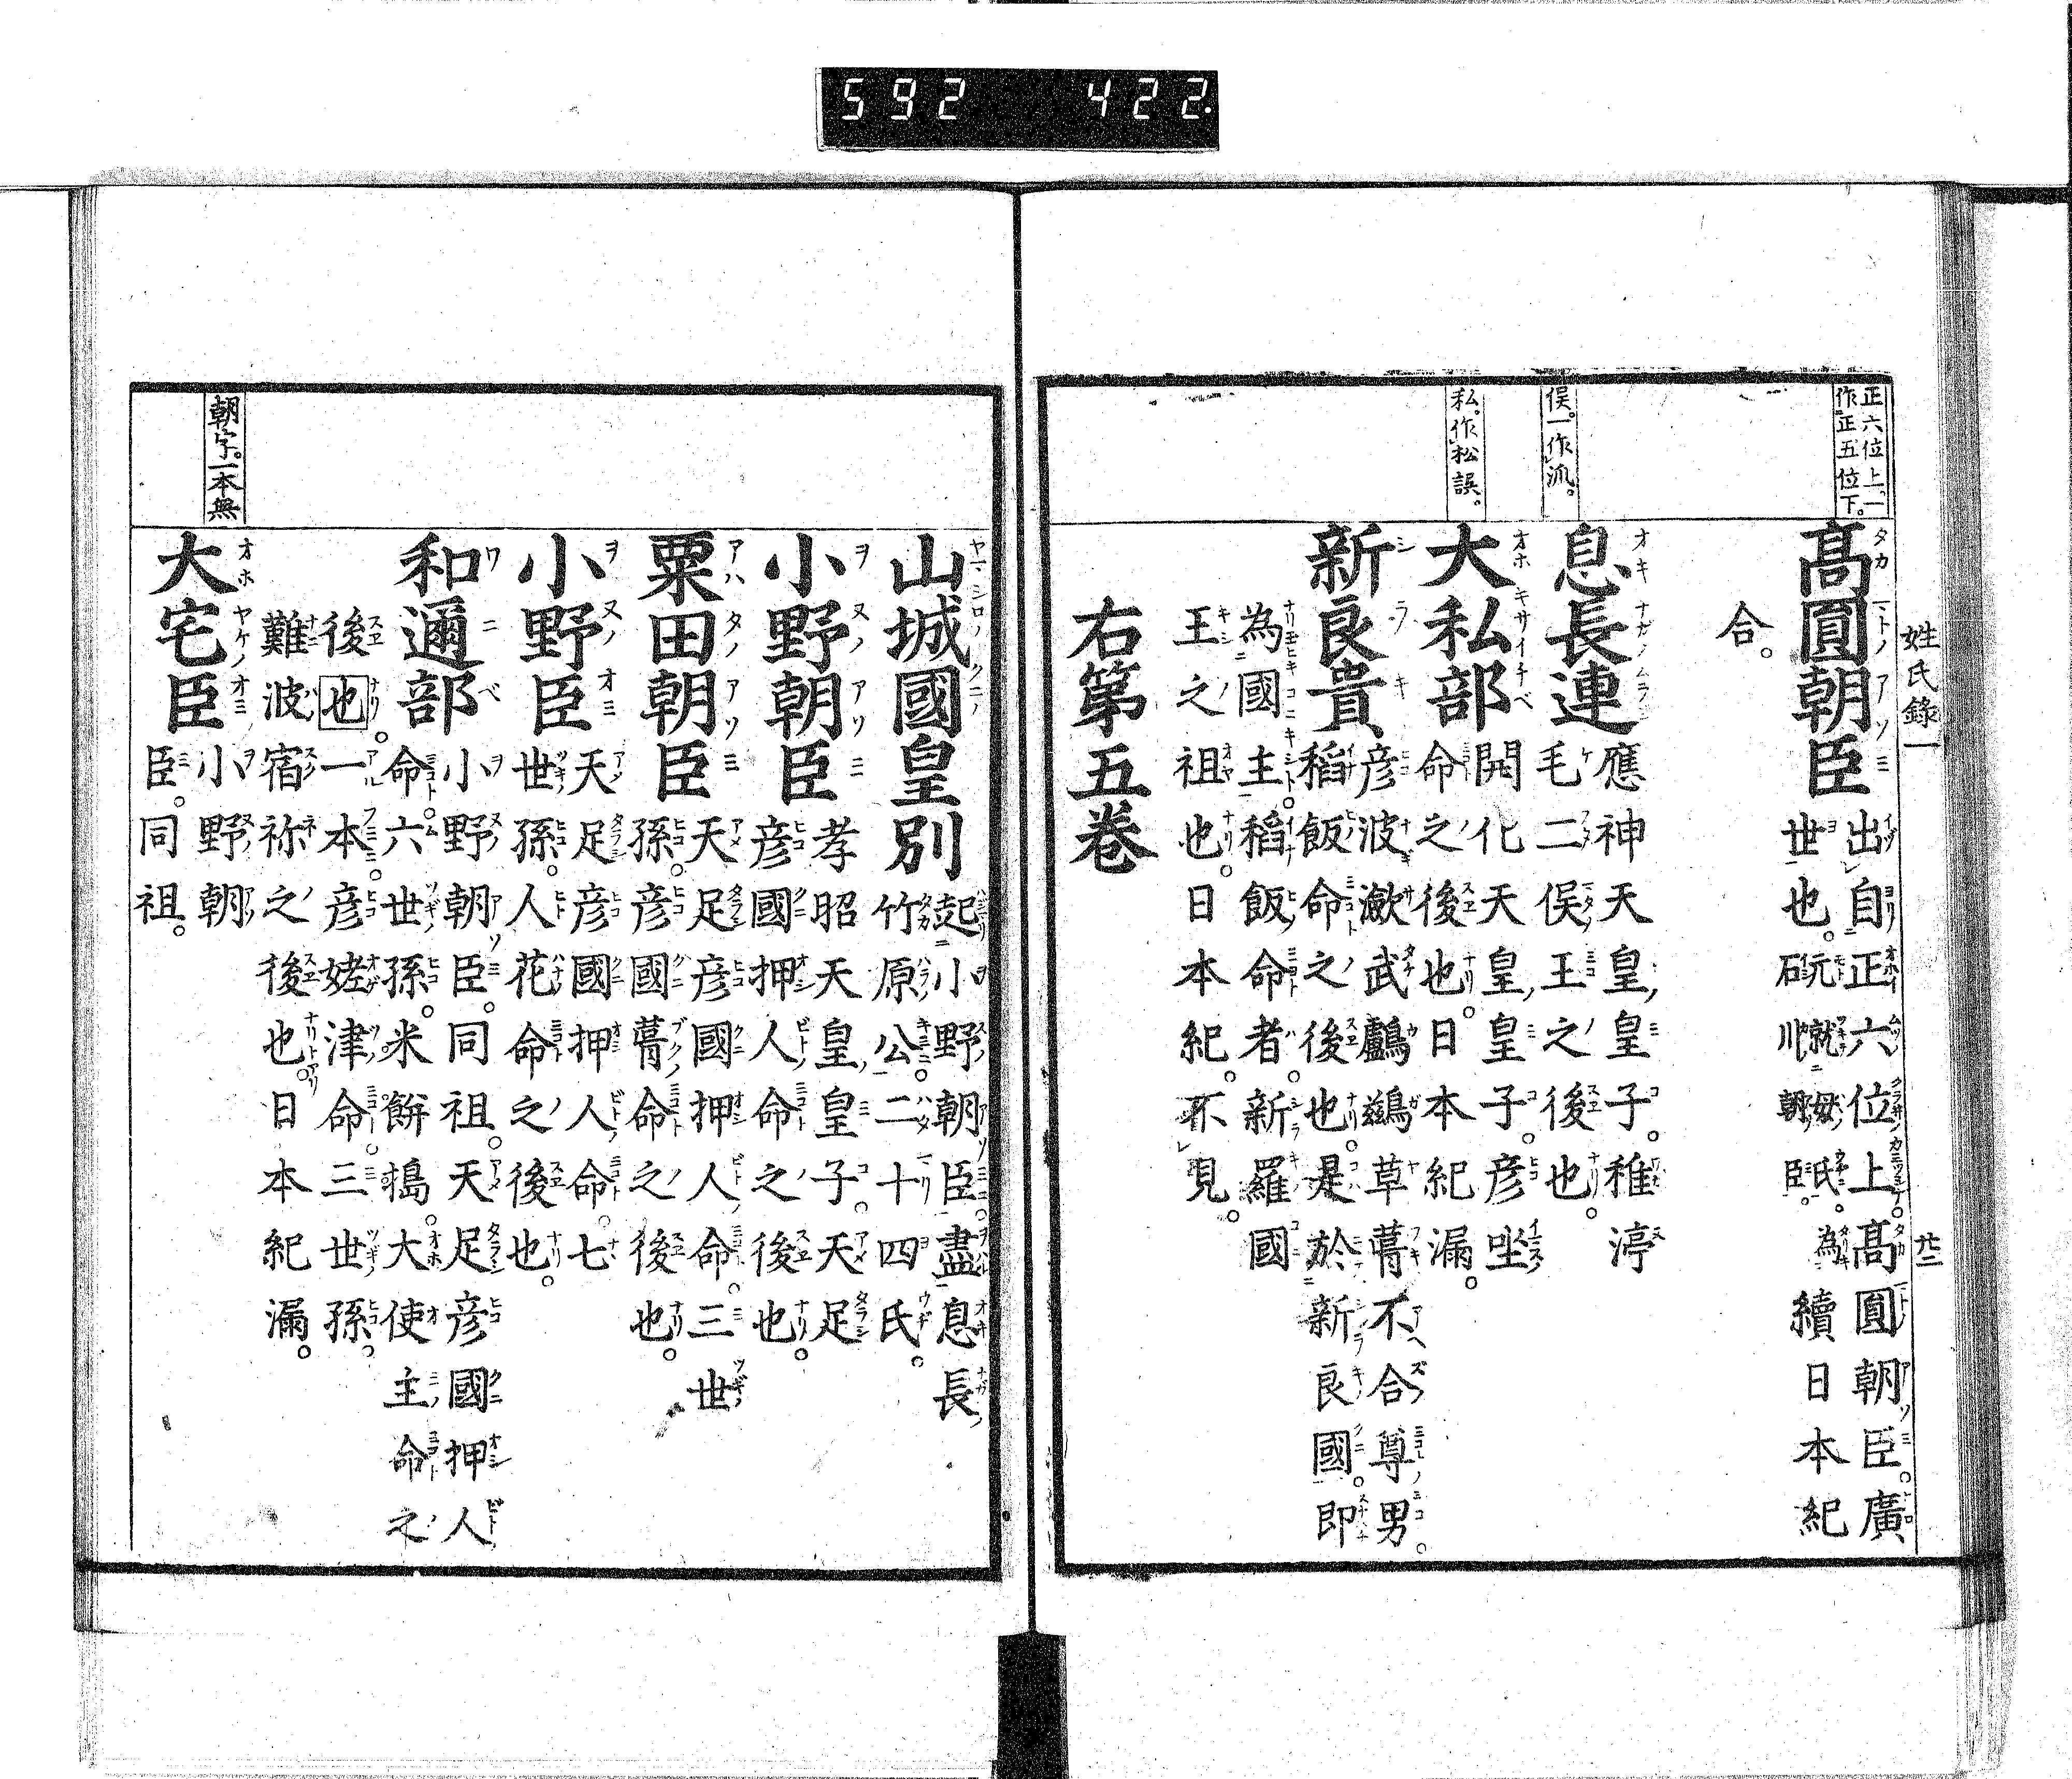 592 422.
姓氏錄一 廿二
正六位上。一
作正五位下。
高圓朝臣
出自正六位上高圓朝臣。廣
世也。元就母氏。為
石川朝臣。續日本紀
合。
俣。一作派。
息長連
應神天皇皇子。稚渟
毛二俣王之後也。
私。作松誤。
大私部
開化天皇皇子。彦坐
命之後也。日本紀漏。
新良貴
彦波瀲武鸕鷀草葺不合尊男。
稻飯命之後也。是於新良國。即
為國主。稻飯命者。新羅國
王之祖也。日本紀。不見。
右第五卷
山城國皇別
起小野朝臣。盡息長
竹原公。二十四氏。
小野朝臣
孝昭天皇皇子。天足
彦國押人命之後也。
粟田朝臣
天足彦國押人命。三世
孫。彦國葺命之後也。
小野臣
天足彦國押人命。七
世孫。人花命之後也。
和邇部
小野朝臣。同祖。天足彦國押人
命。六世孫。米餅搗。大使主命之
後也。一本。彦姥津命。三世孫。
難波宿祢之後也。日本紀漏。
朝字。一本無
大宅臣
小野朝
臣。同祖。